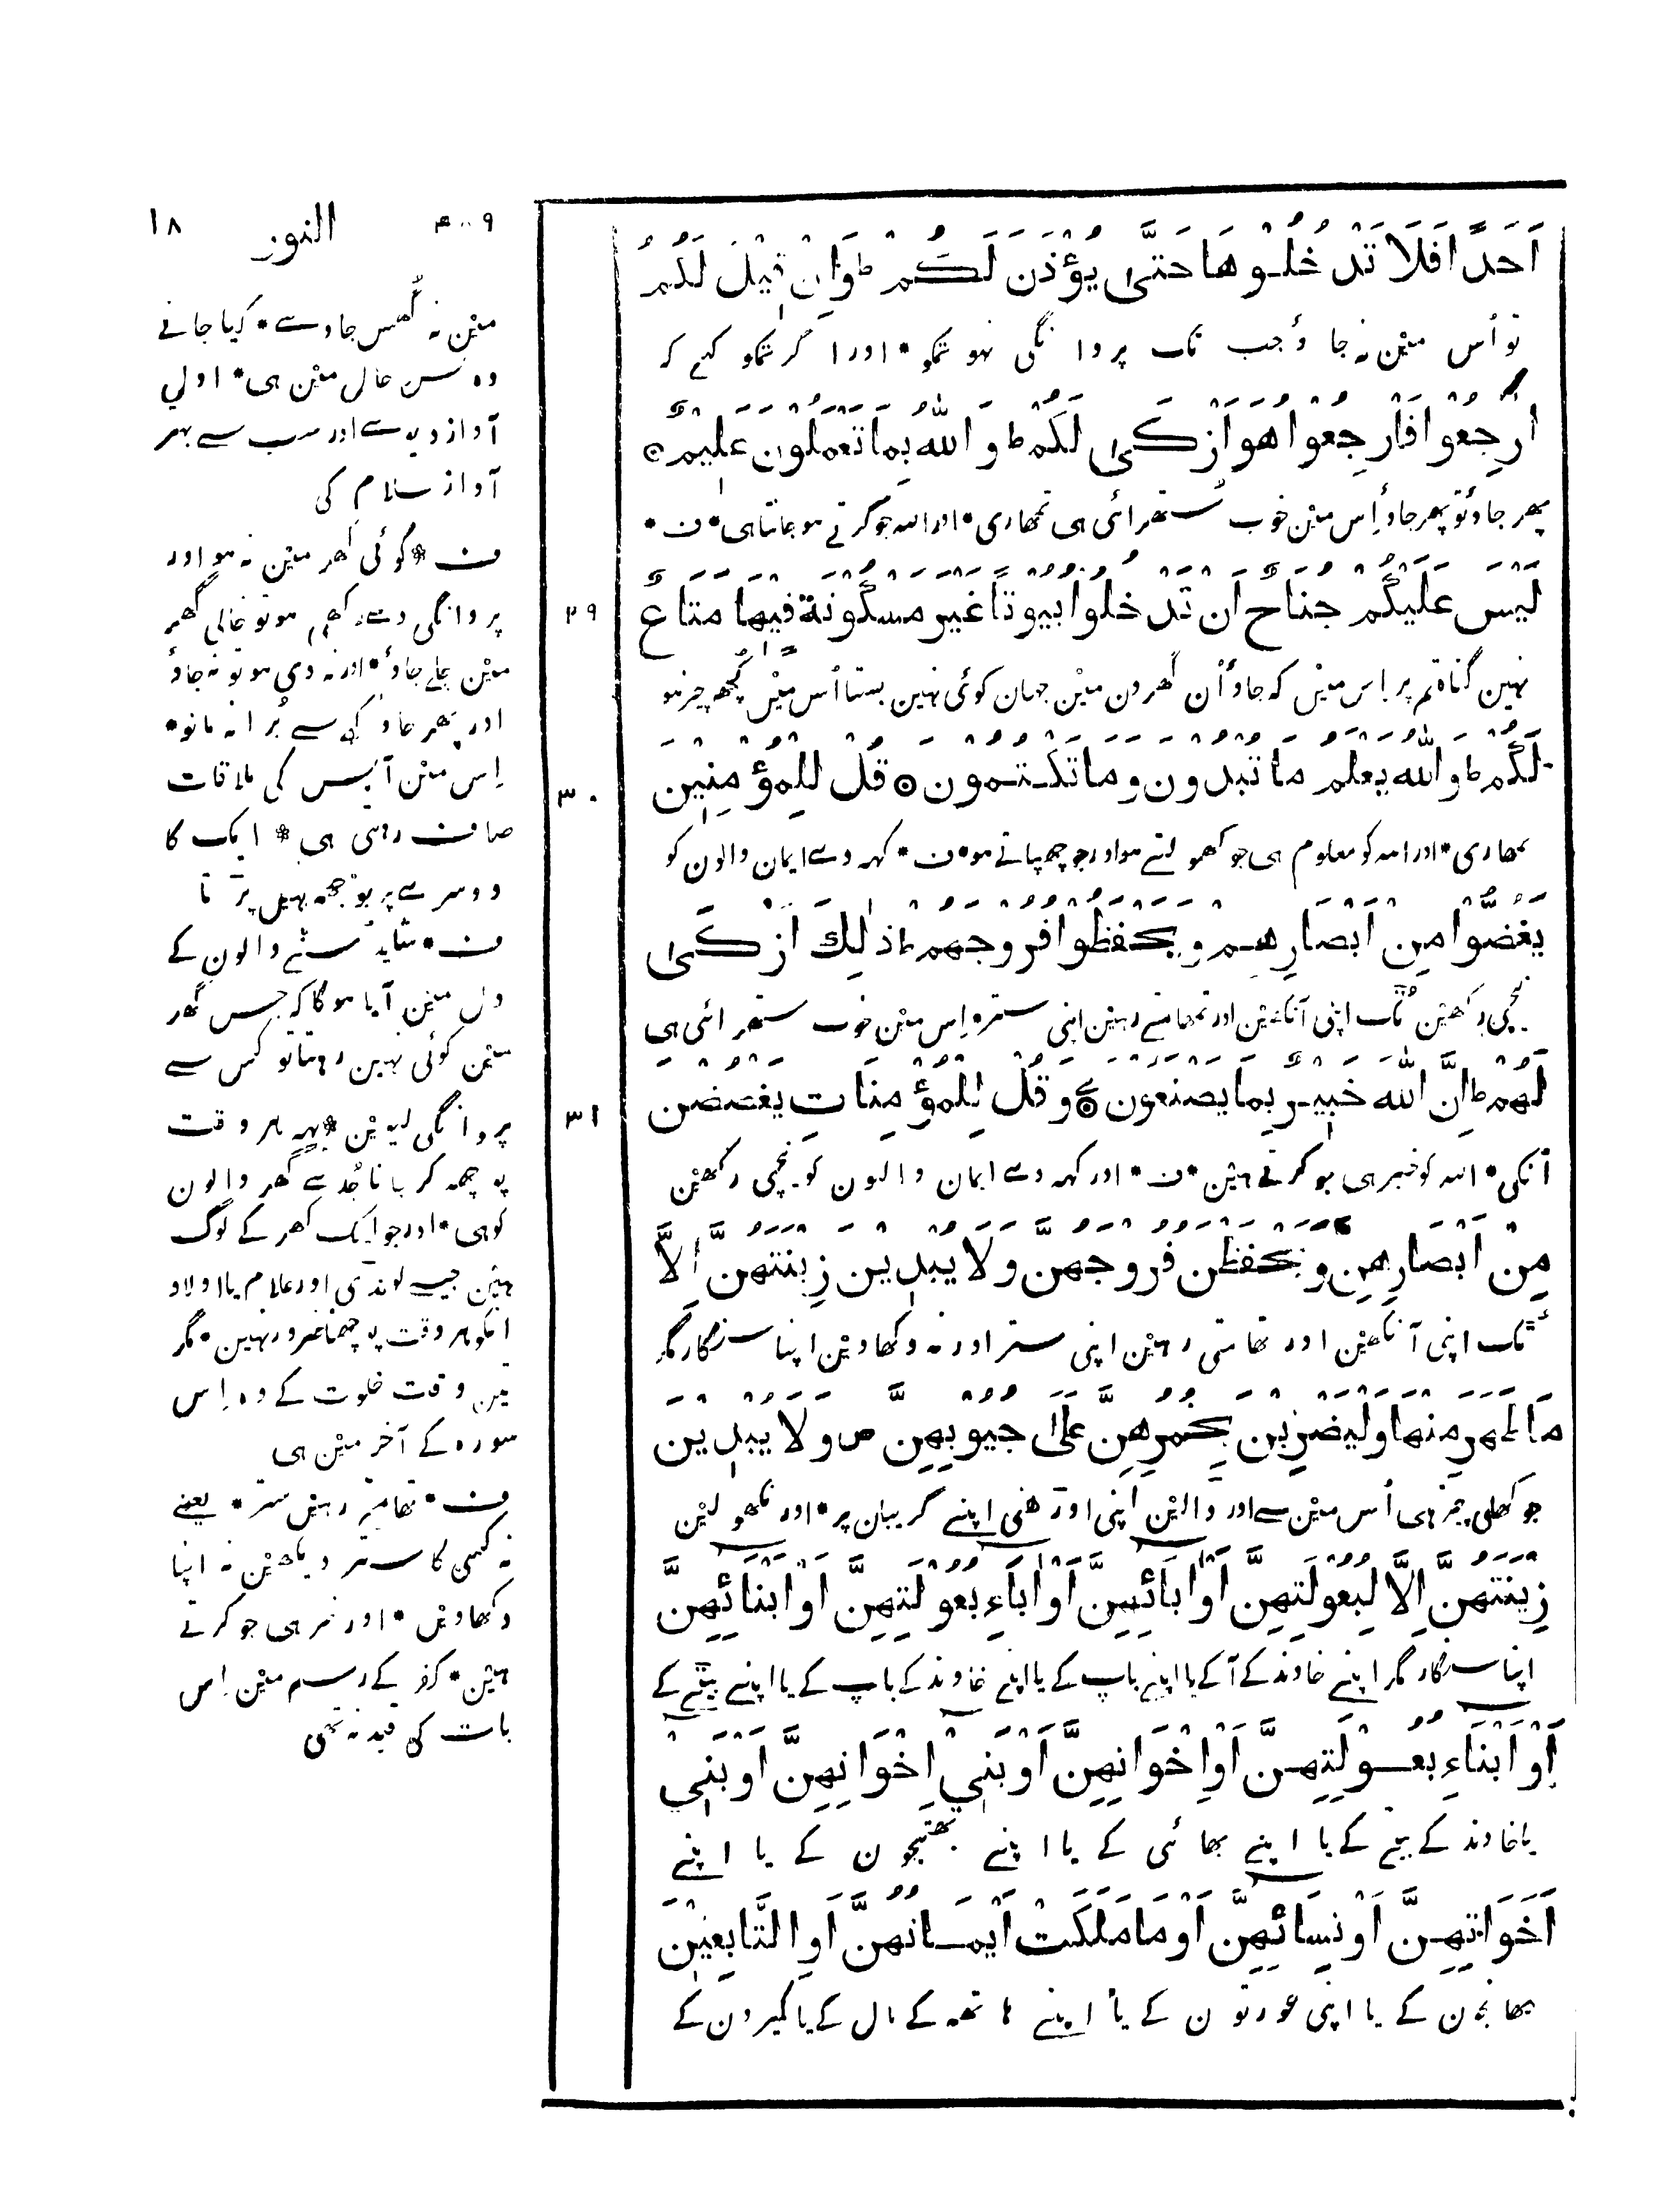 اَحَدًا فَلَا تَدْخُلُوْهَا حَتّٰى يُؤْذَنَ لَكُمْ ط وَاِنْ قِيْلَ لَكُمُ
تو اُس مین نہ جاؤ جب تک پروانگی نہو تمکو * اور اگر تمکو کہے کہ
ارْجِعُوْا فَارْجِعُوْا هُوَ اَزْكٰى لَكُمْ ط وَ اللّٰهُ بِمَا تَعْمَلُوْنَ عَلِيْمٌ ۝
پھر جاؤ تو پھر جاؤ اِس مین خوب ستھرائی ہی تمھاری * اور اللہ جو کرتے ہو جانتا ہی * ف *
لَيْسَ عَلَيْكُمْ جُنَاحٌ اَنْ تَدْخُلُوْا بُيُوْتًا غَيْرَ مَسْكُوْنَةٍ فِيْهَا مَتَاعٌ
۲۹
نہین گناہ تم پر اِس مین کہ جاؤ اُن گھرون مین جہان کوئی نہین بستا اُس مین کچھ چیز ہو
لَكُمْ ط وَ اللّٰهُ يَعْلَمُ مَا تُبْدُوْنَ وَمَا تَكْتُمُوْنَ ۝ قُلْ لِلْمُؤْمِنِيْنَ
۳۰
تمھاری * اور اللہ کو معلوم ہی جو کھولتے ہو اور جو چھپاتے ہو * ف * کہہ دے ایمان والون کو
يَغُضُّوْا مِنْ اَبْصَارِهِمْ وَيَحْفَظُوْا فُرُوْجَهُمْ ط ذٰلِكَ اَزْكٰى
نیچی رکھین ٹک اپنی آنکھین اور تھامتے رہین اپنی ستر * اِس مین خوب ستھرائی ہی
لَهُمْ ط اِنَّ اللّٰهَ خَبِيْرٌ بِمَا يَصْنَعُوْنَ ۝ وَ قُلْ لِلْمُؤْمِنَاتِ يَغْضُضْنَ
۳۱
اُنکی * اللہ کو خبر ہی جو کرتے ہین * ف * اور کہہ دے ایمان والیون کو نیچی رکھین
مِنْ اَبْصَارِهِنَّ وَ يَحْفَظْنَ فُرُوْجَهُنَّ وَ لَا يُبْدِيْنَ زِيْنَتَهُنَّ اِلَّا
ٹک اپنی آنکھین اور تھامتی رہین اپنی ستر اور نہ دکھاوین اپنا سنگار مگر
مَا ظَهَرَ مِنْهَا وَلْيَضْرِبْنَ بِخُمُرِهِنَّ عَلٰى جُيُوْبِهِنَّ ص وَ لَا يُبْدِيْنَ
جو کھلی چیز ہی اُس مین سے اور ڈالین اپنی اوڑھنی اپنے گریبان پر * اور نکھولین
زِيْنَتَهُنَّ اِلَّا لِبُعُوْلَتِهِنَّ اَوْ اٰبَائِهِنَّ اَوْ اٰبَاءِ بُعُوْلَتِهِنَّ اَوْ اَبْنَائِهِنَّ
اپنا سنگار مگر اپنے خاوند کے آگے یا اپنے باپ کے یا اپنے خاوند کے باپ کے یا اپنے بیٹے کے
اَوْ اَبْنَاءِ بُعُوْلَتِهِنَّ اَوْ اِخْوَانِهِنَّ اَوْ بَنِيْ اِخْوَانِهِنَّ اَوْ بَنِيْ
یا خاوند کے بیٹے کے یا اپنے بھائی کے یا اپنے بھتیجون کے یا اپنے
اَخَوَاتِهِنَّ اَوْ نِسَائِهِنَّ اَوْ مَا مَلَكَتْ اَيْمَانُهُنَّ اَوِ التَّابِعِيْنَ
بھانجون کے یا اپنی عورتون کے یا اپنے ہاتھہ کے مال کے یا کمیرون کے
۴۰۹ النور ۱۸
مین نہ گُھس جاوے * کیا جانے
وہ کس حال مین ہی * اولی
آواز دیوے اور سب سے بہتر
آواز سلام کی
ف * کوئی گھر مین نہ ہو اور
پروانگی دے رکھی ہو تو خالی گھر
مین چلے جاؤ * اور نہ دی ہو تو نہ جاؤ
اور پھر جاؤ کہے سے بُرا نہ مانو *
اِس مین آپس کی ملاقات
صاف رہتی ہی * ایک کا
دوسرے پر بوجھہ نہین پڑتا
ف * شاید سننے والون کے
دل مین آیا ہوگا کہ جس گھر
مین کوئی نہین رہتا تو کس سے
پروانگی لیوین * یہہ ہر وقت
پوچھہ کر جانا جُدے گھر والون
کو ہی * اور جو ایک گھر کے لوگ
ہین جیسے لونڈی اور غلام یا اولاد
انکو ہر وقت پوچھنا ضرور نہین * مگر
تین وقت خلوت کے وہ اِس
سورہ کے آخر مین ہی
ف * تھامتے رہین ستر * یعنے
نہ کسی کا ستر دیکھین نہ اپنا
دکھاوین * اور خبر ہی جو کرتے
ہین * کفر کے رسم مین اِس
بات کی قید نہ تھی